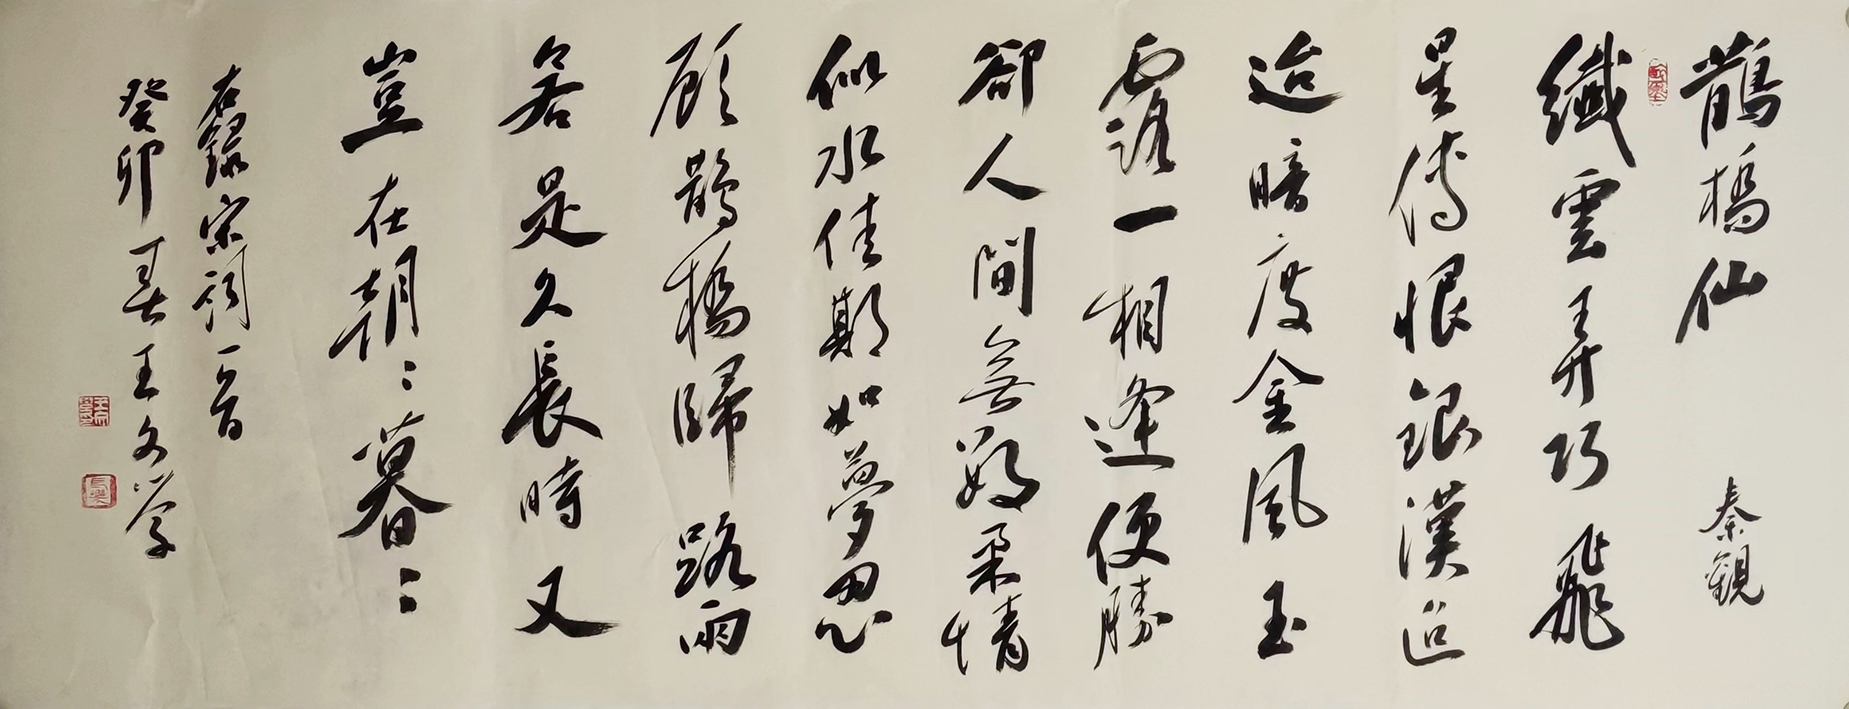 鵲橋仙 秦觀
纖雲弄巧飛
星傳恨銀漢迢
迢暗度金風玉
露一相逢便勝
卻人間無數柔情
似水佳期如夢忍
顧鵲橋歸路兩
若是久長時又
豈在朝:暮:
右錄宋詞一首
癸卯春王文学